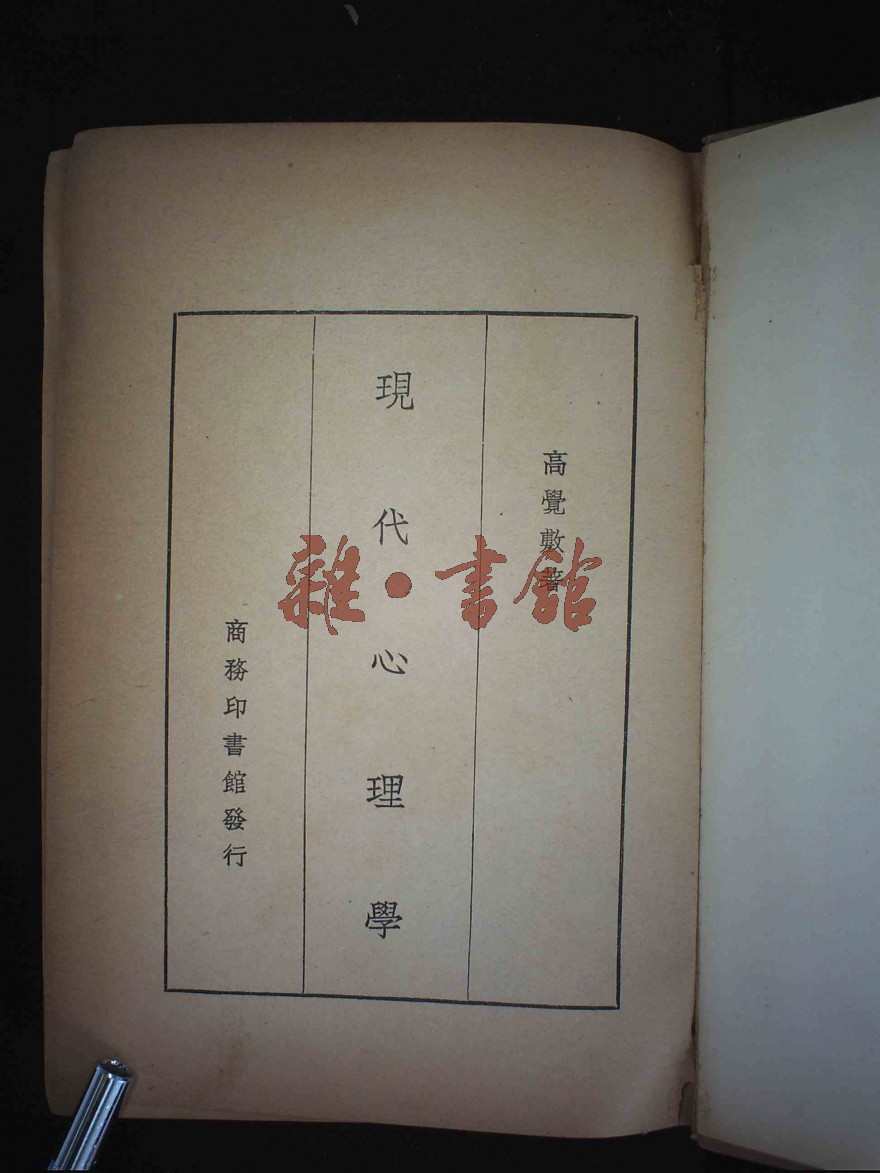 高覺敷著
現代心理學
商務印書館發行
雜·書館